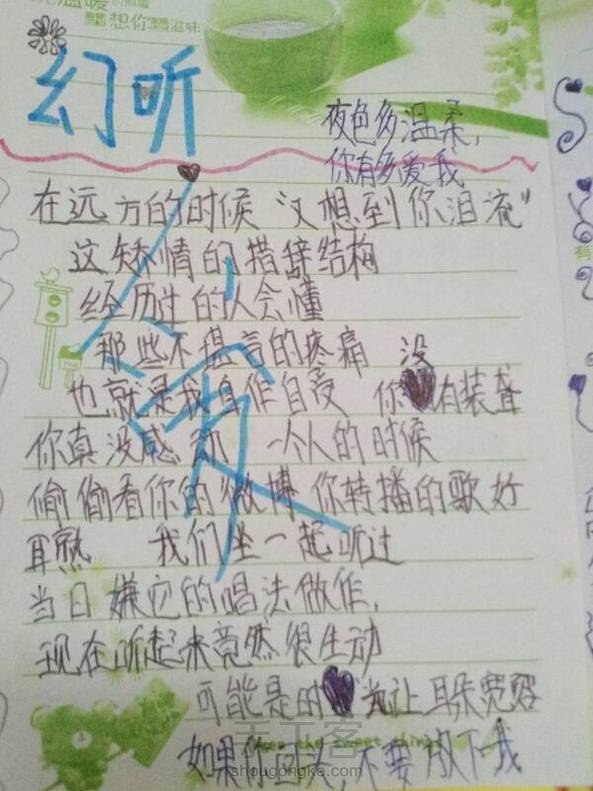 温暖
想你 滋味
幻听
夜色多温柔,
你有多爱我
在远方的时候 "又想到你泪流"
这矫情的措辞结构
经历过的人会懂
那些不堪言的疼痛 没
也就是我自作自受 你有装聋
你真没感动 一个人的时候
偷偷看你的微博 你转播的歌好
耳熟 我们坐一起听过
当日嫌它的唱法做作,
现在听起来竟然很生动
可能是时光让耳朵宽容
如果你回头,不要放下我
手工客
shougongke.com
the sweet